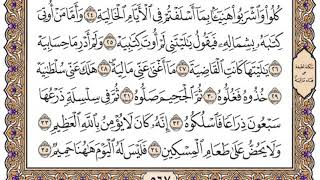 كُلُوا۟ وَٱشْرَبُوا۟ هَنِيٓـًٔۢا بِمَآ أَسْلَفْتُمْ فِى ٱلْأَيَّامِ ٱلْخَالِيَةِ ٢٤ وَأَمَّا مَنْ أُوتِىَ
كِتَٰبَهُۥ بِشِمَالِهِۦ فَيَقُولُ يَٰلَيْتَنِى لَمْ أُوتَ كِتَٰبِيَهْ ٢٥ وَلَمْ أَدْرِ مَا حِسَابِيَهْ
٢٦ يَٰلَيْتَهَا كَانَتِ ٱلْقَاضِيَةَ ٢٧ مَآ أَغْنَىٰ عَنِّى مَالِيَهْ ٢٨ هَلَكَ عَنِّى سُلْطَٰنِيَهْ
٢٩ خُذُوهُ فَغُلُّوهُ ٣٠ ثُمَّ ٱلْجَحِيمَ صَلُّوهُ ٣١ ثُمَّ فِى سِلْسِلَةٍ ذَرْعُهَا
سَبْعُونَ ذِرَاعًا فَٱسْلُكُوهُ ٣٢ إِنَّهُۥ كَانَ لَا يُؤْمِنُ بِٱللَّهِ ٱلْعَظِيمِ ٣٣
وَلَا يَحُضُّ عَلَىٰ طَعَامِ ٱلْمِسْكِينِ ٣٤ فَلَيْسَ لَهُ ٱلْيَوْمَ هَٰهُنَا حَمِيمٌ ٣٥
٥٦٧